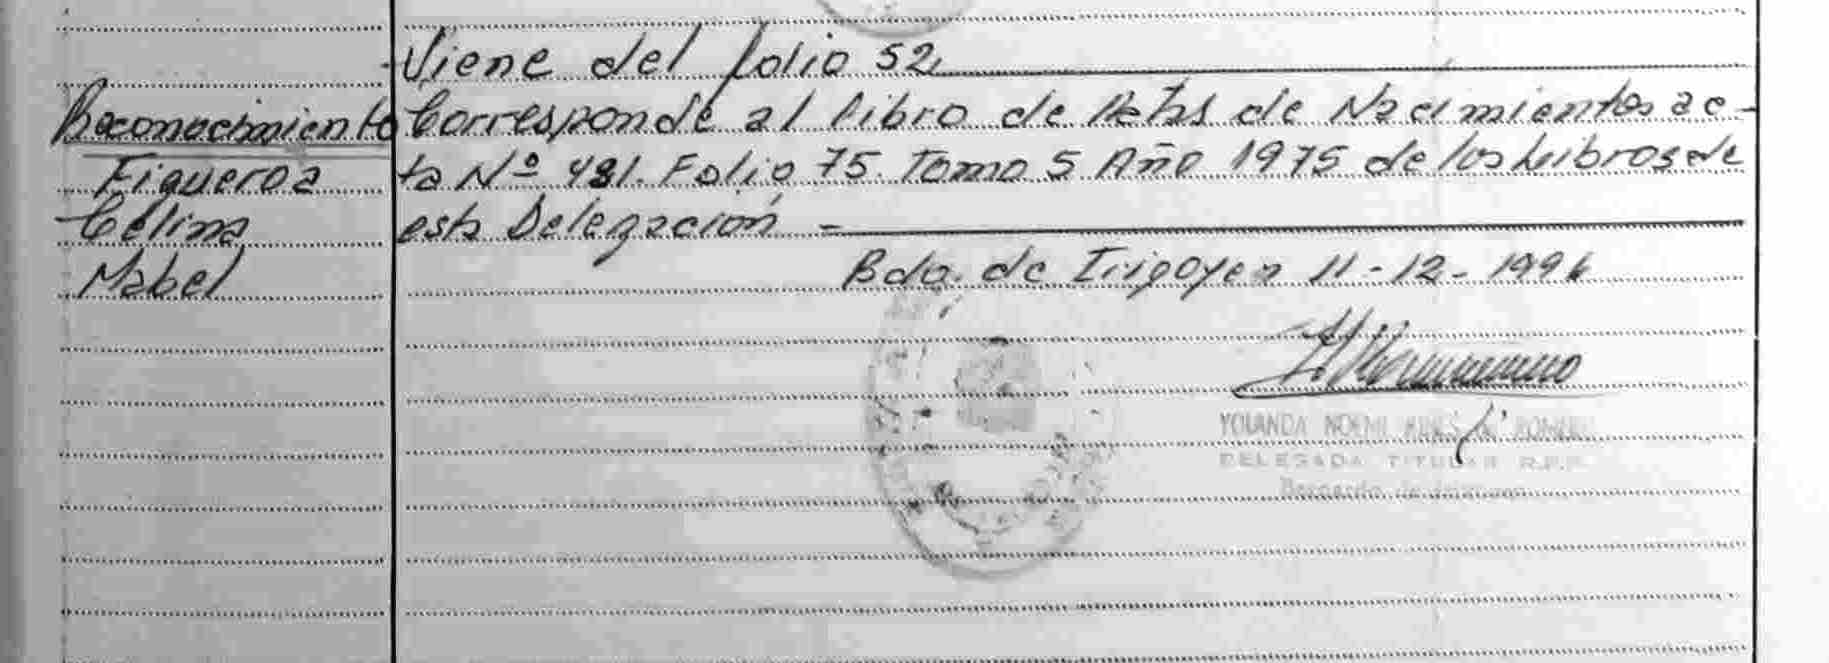 Viene del folio 52
Reconocimiento Corresponde al libro de Actas de Nacimientos ac-
Figueroa ta Nº 481. Folio 75. Tomo 5 Año 1975 de los Libros de
Celina esta Delegación -
Mabel Bdo. de Irigoyen 11-12-1996
YOLANDA NOEMI
DELEGADA TITULAR R.P.P.
Bernardo de Irigoyen